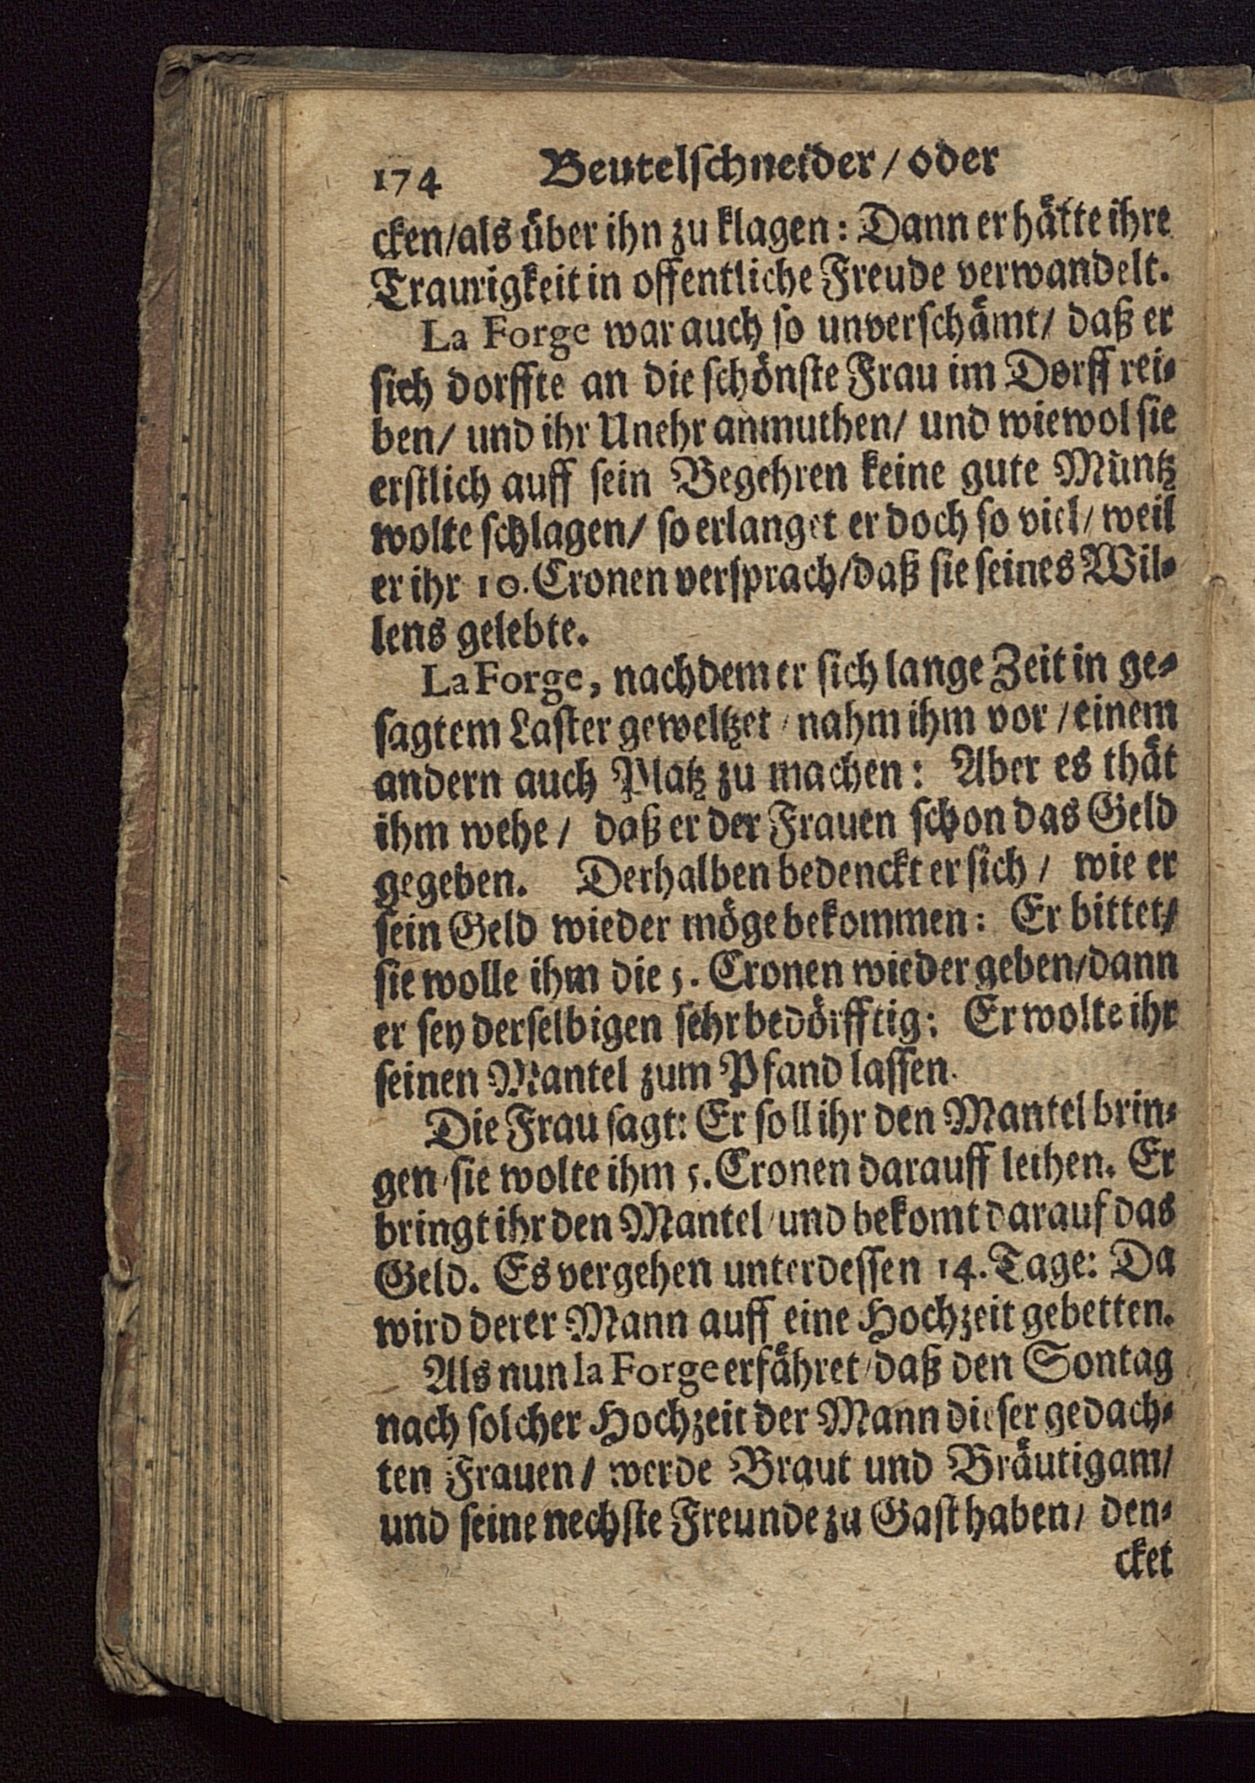 174 Beutelschneider/ oder
cken/als über ihn zu klagen: Dann er hätte ihre
Traurigkeit in offentliche Freude verwandelt.
La Forge war auch so unverschämt/ daß er
sich dorffte an die schönste Frau im Dorff rei-
ben/ und ihr Unehr anmuthen/ und wiewol sie
erstlich auff sein Begehren keine gute Müntz
wolte schlagen/ so erlanget er doch so viel/ weil
er ihr 10. Cronen versprach/daß sie seines Wil-
lens gelebte.
La Forge, nachdem er sich lange Zeit in ge-
sagtem Laster geweltzet/ nahm ihm vor/ einem
andern auch Platz zu machen: Aber es thät
ihm wehe/ daß er der Frauen schon das Geld
gegeben. Derhalben bedenckt er sich/ wie er
sein Geld wieder möge bekommen: Er bittet/
sie wolle ihm die 5. Cronen wieder geben/dann
er sey derselbigen sehr bedörfftig: Er wolte ihr
seinen Mantel zum Pfand lassen.
Die Frau sagt: Er soll ihr den Mantel brin-
gen/ sie wolte ihm 5. Cronen darauff leihen. Er
bringt ihr den Mantel/ und bekomt darauf das
Geld. Es vergehen unterdessen 14. Tage: Da
wird derer Mann auff eine Hochzeit gebetten.
Als nun la Forge erfähret/ daß den Sontag
nach solcher Hochzeit der Mann dieser gedach-
ten Frauen/ werde Braut und Bräutigam/
und seine nechste Freunde zu Gast haben/ den-
cket